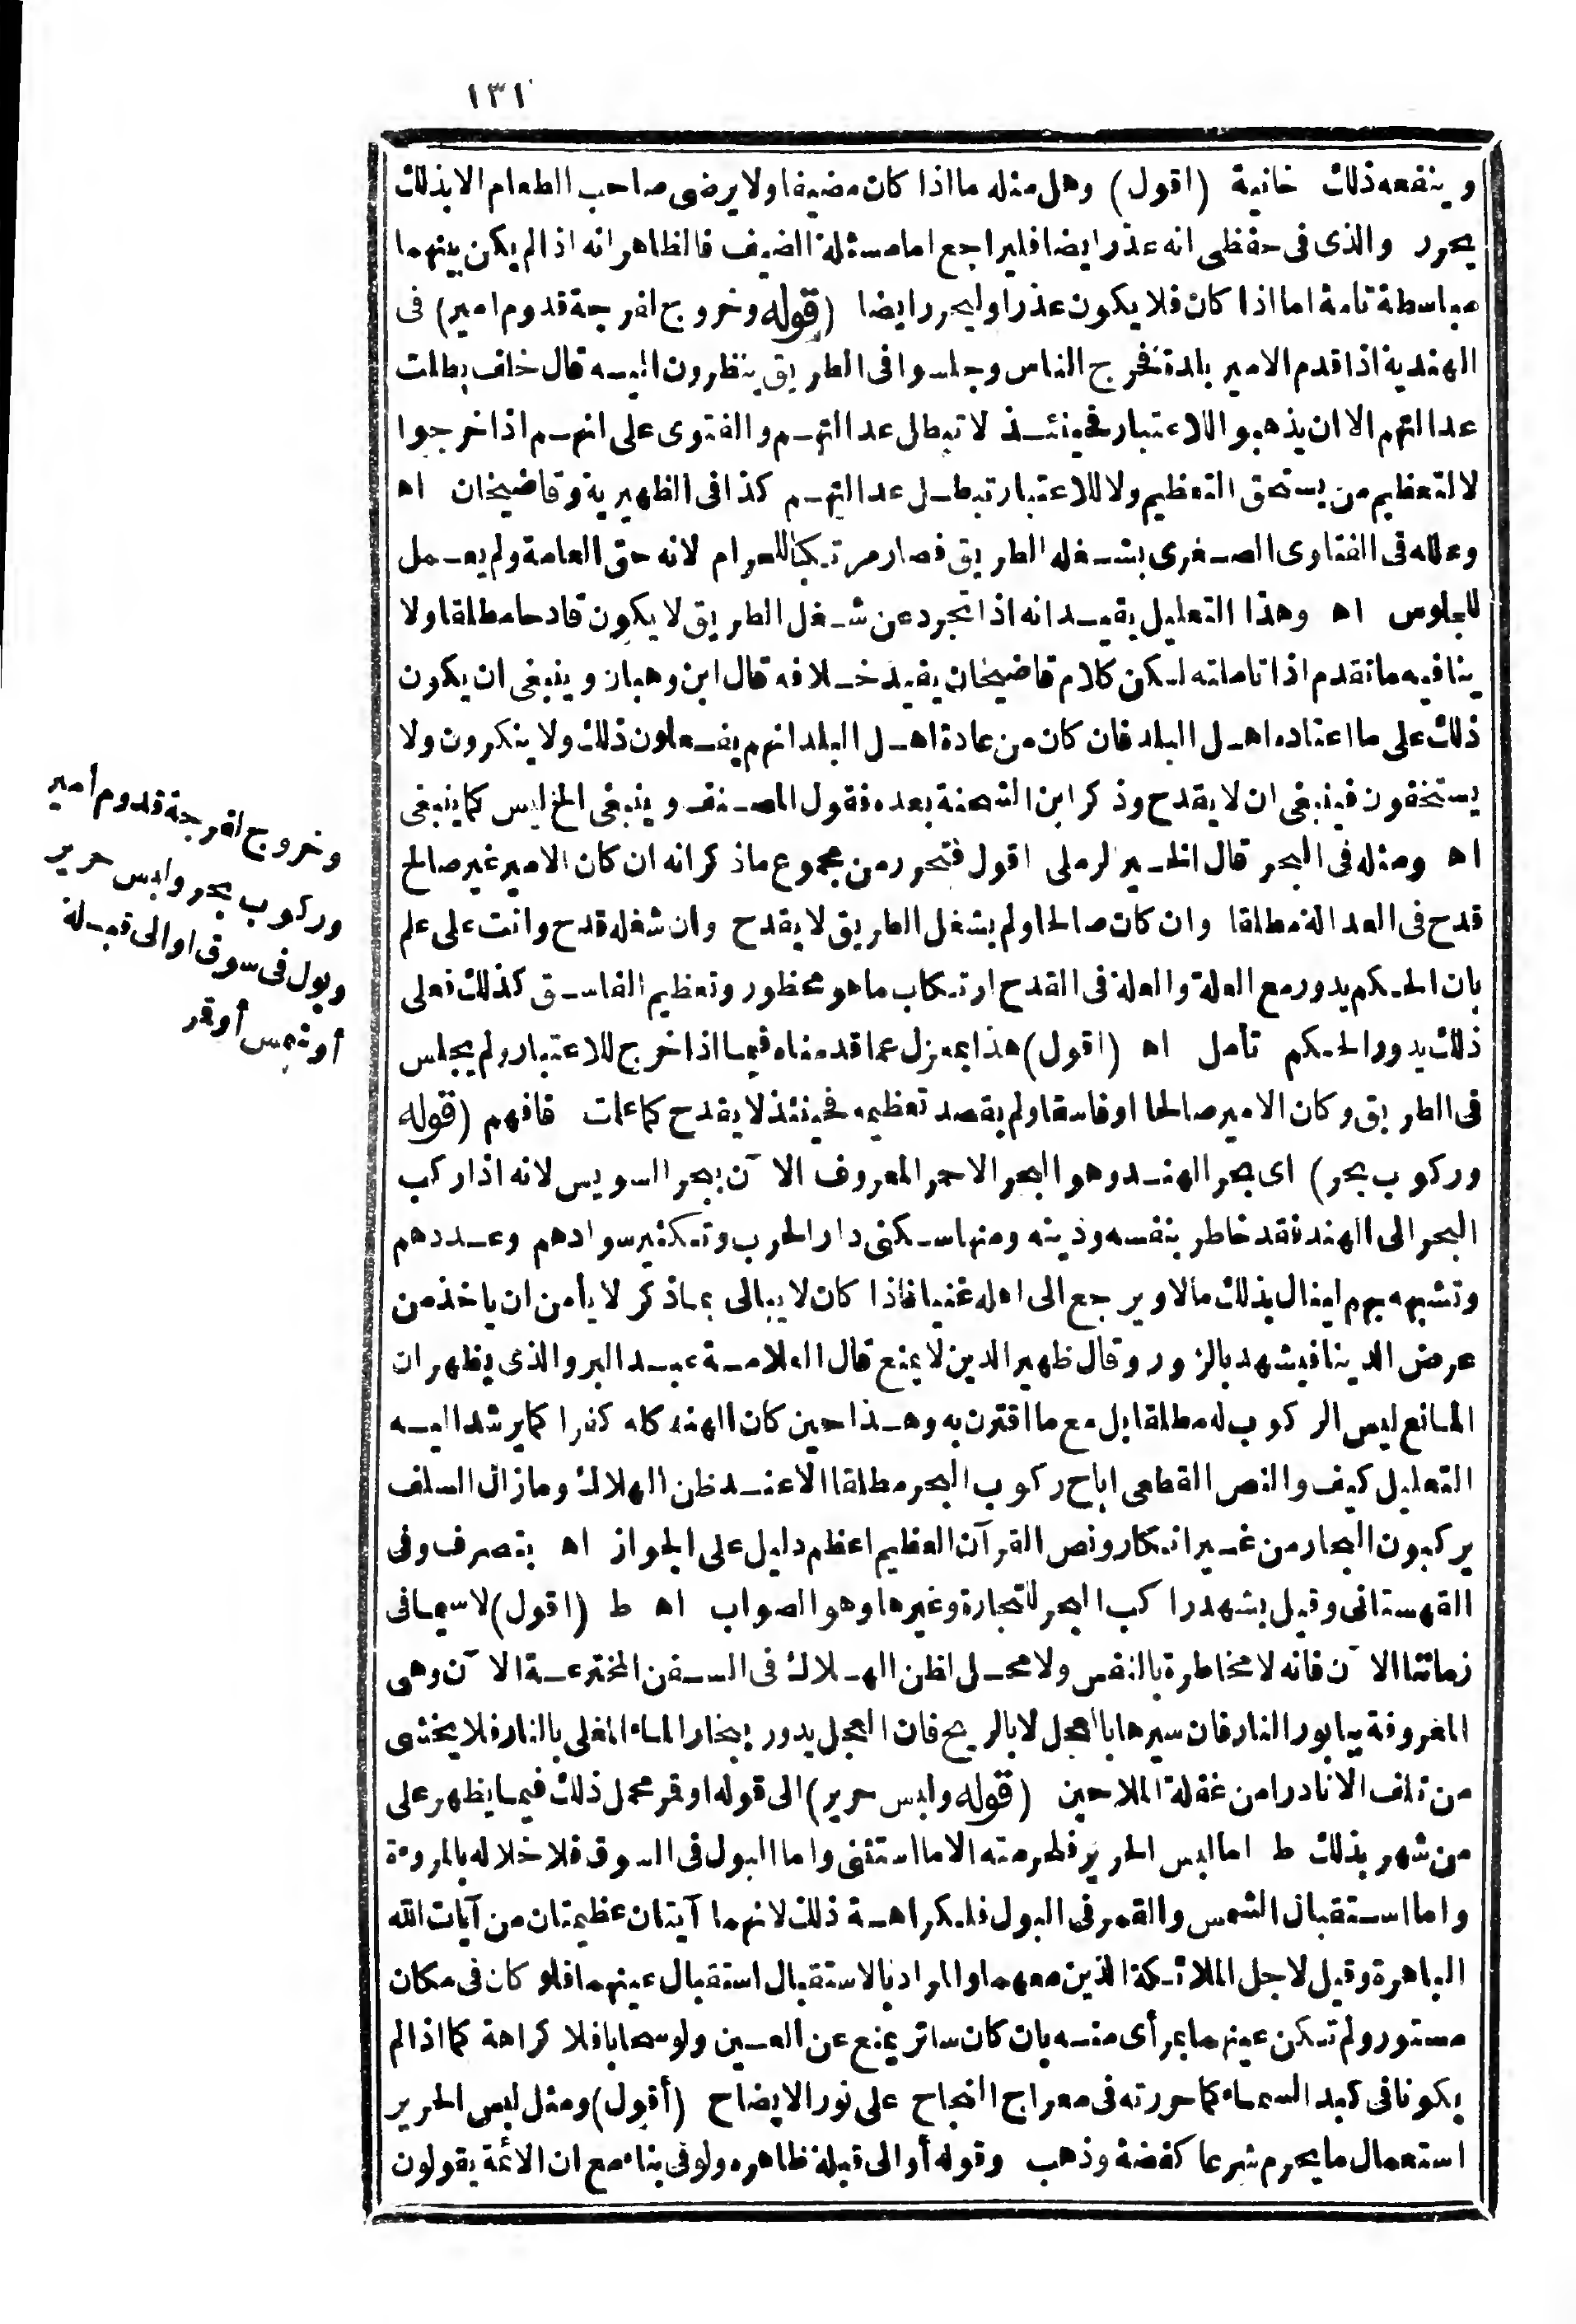 ١٣١
وينفعه ذلك خانية (اقول) وهل مثله ما اذا كان مضيفا ولا يرضى صاحب الطعام الا بذلك
يحرر والذى فى حفظى انه عذر ايضا فليراجع اما مسئلة الضيف فالظاهر انه اذا لم يكن بينهما
مباسطة تامة اما اذا كان فلا يكون عذرا وليحرر ايضا (قوله وخروج لفرجة قدوم امير) فى
الهندية اذا قدم الامير بلدة فخرج الناس وجلسوا فى الطريق ينظرون اليه قال خلف بطلت
عدالتهم الا ان يذهبوا للاعتبار فحينئذ لا تبطل عدالتهم والفتوى على انهم اذا خرجوا
لا لتعظيم من يستحق التعظيم ولا للاعتبار تبطل عدالتهم كذا فى الظهيرية وقاضيخان اه
وعلله فى الفتاوى الصغرى بشغله الطريق فصار مرتكبا للحرام لانه حق العامة ولم يعمل
للجلوس اه وهذا التعليل يفيد انه اذا تجرد عن شغل الطريق لا يكون قادحا مطلقا ولا
ينافيه ما تقدم اذا تاملته لكن كلام قاضيخان يفيد خلافه قال ابن وهبان وينبغى ان يكون
ذلك على ما اعتاده اهل البلد فان كان من عادة اهل البلد انهم يفعلون ذلك ولا ينكرون ولا
يستخفون فينبغى ان لا يقدح وذكر ابن الشحنة بعده فقول المصنف وينبغى الخ ليس كما ينبغى
اه ومثله فى البحر قال الخير لرملى اقول فتحرر من مجموع ما ذكر انه ان كان الامير غير صالح
قدح فى العدالة مطلقا وان كان صالحا ولم يشغل الطريق لا يقدح وان شغله قدح وانت على علم
بان الحكم يدور مع العلة والعلة فى القدح ارتكاب ما هو محظور وتعظيم الفاسق كذلك فعلى
ذلك يدور الحكم تأمل اه (اقول) هذا بمعزل عما قدمناه فيما اذا خرج للاعتبار ولم يجلس
فى الطريق وكان الامير صالحا او فاسقا ولم يقصد تعظيمه فحينئذ لا يقدح كما علمت فافهم (قوله
وركوب بحر) اى بحر الهند وهو البحر الاحمر المعروف الآن ببحر السويس لانه اذا ركب
البحر الى الهند فقد خاطر بنفسه ودينه ومنها سكنى دار الحرب وتكثير سوادهم وعددهم
وتشبهه بهم لينال بذلك مالا ويرجع الى اهله غنيا فاذا كان لا يبالى بما ذكر لا يأمن ان ياخذ من
عرض الدينا فيشهد بالزور وقال ظهير الدين لا يمنع قال العلامة عبد البر والذى يظهر ان
المانع ليس الركوب له مطلقا بل مع ما اقترن به وهذا حين كان الهند كله كفرا كما يرشد اليه
التعليل كيف والنص القطعى اباح ركوب البحر مطلقا الا عند ظن الهلاك وما زال السلف
يركبون البحار من غير انكار ونص القرآن العظيم اعظم دليل على الجواز اه بتصرف وفى
القهستانى وقيل يشهد راكب البحر للتجارة وغيرها وهو الصواب اه ط (اقول) لا سيما فى
زماننا الآن فانه لا مخاطرة بالنفس ولا محل لظن الهلاك فى السفن المخترعة الآن وهى
المعروفة ببابور النار فان سيرها بالعجل لا بالريح فان العجل يدور ببخار الماء المغلى بالنار فلا يخشى
من تلف الا نادرا من غفلة الملاحين (قوله ولبس حرير) الى قوله او قمر محمل ذلك فيما يظهر على
من شهر بذلك ط اما لبس الحرير فلحرمته الا ما استثنى واما البول فى السوق فلاخلاله بالمروءة
واما استقبال الشمس والقمر فى البول فلكراهة ذلك لانهما آيتان عظيمتان من آيات الله
الباهرة وقيل لاجل الملائكة الذين معهما والمراد بالاستقبال استقبال عينهما فلو كان فى مكان
مستور ولم تكن عينهما بمرأى منه بان كان ساتر يمنع عن العين ولو سحابا فلا كراهة كما اذا لم
يكونا فى كبد السماء كما حررته فى معراج النجاح على نور الايضاح (أقول) ومثل لبس الحرير
استعمال ما يحرم شرعا كفضة وذهب وقوله أو الى قبلة ظاهره ولو فى بناء مع ان الائمة يقولون
وخروج لفرجة قدوم أمير
وركوب بحر ولبس حرير
وبول فى سوق او الى قبلة
أو شمس أو قمر